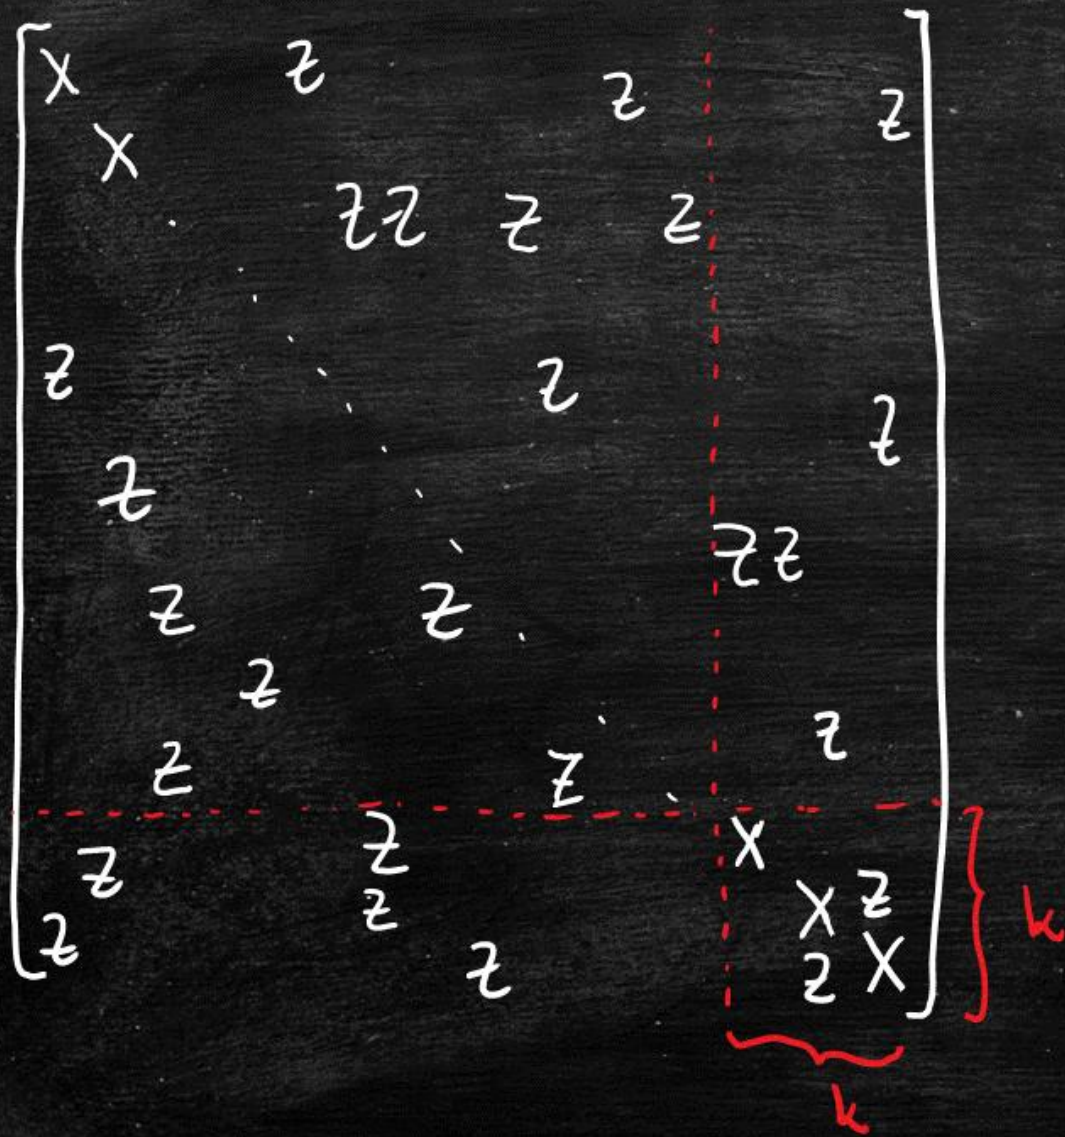 X Z
Z Z
X
Z Z Z Z
Z Z
Z
Z
Z Z
Z Z
Z
Z
Z Z
X
Z Z
X Z
Z k
Z X
Z Z
k